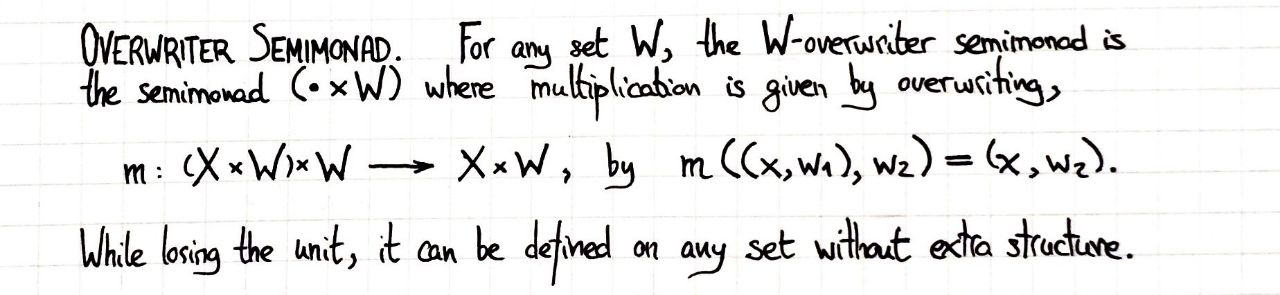 OVERWRITER SEMIMONAD. For any set W, the W-overwriter semimonad is
the semimonad (• × W) where multiplication is given by overwriting,
m : (X × W) × W ⟶ X × W, by m((x, w₁), w₂) = (x, w₂).
While losing the unit, it can be defined on any set without extra structure.